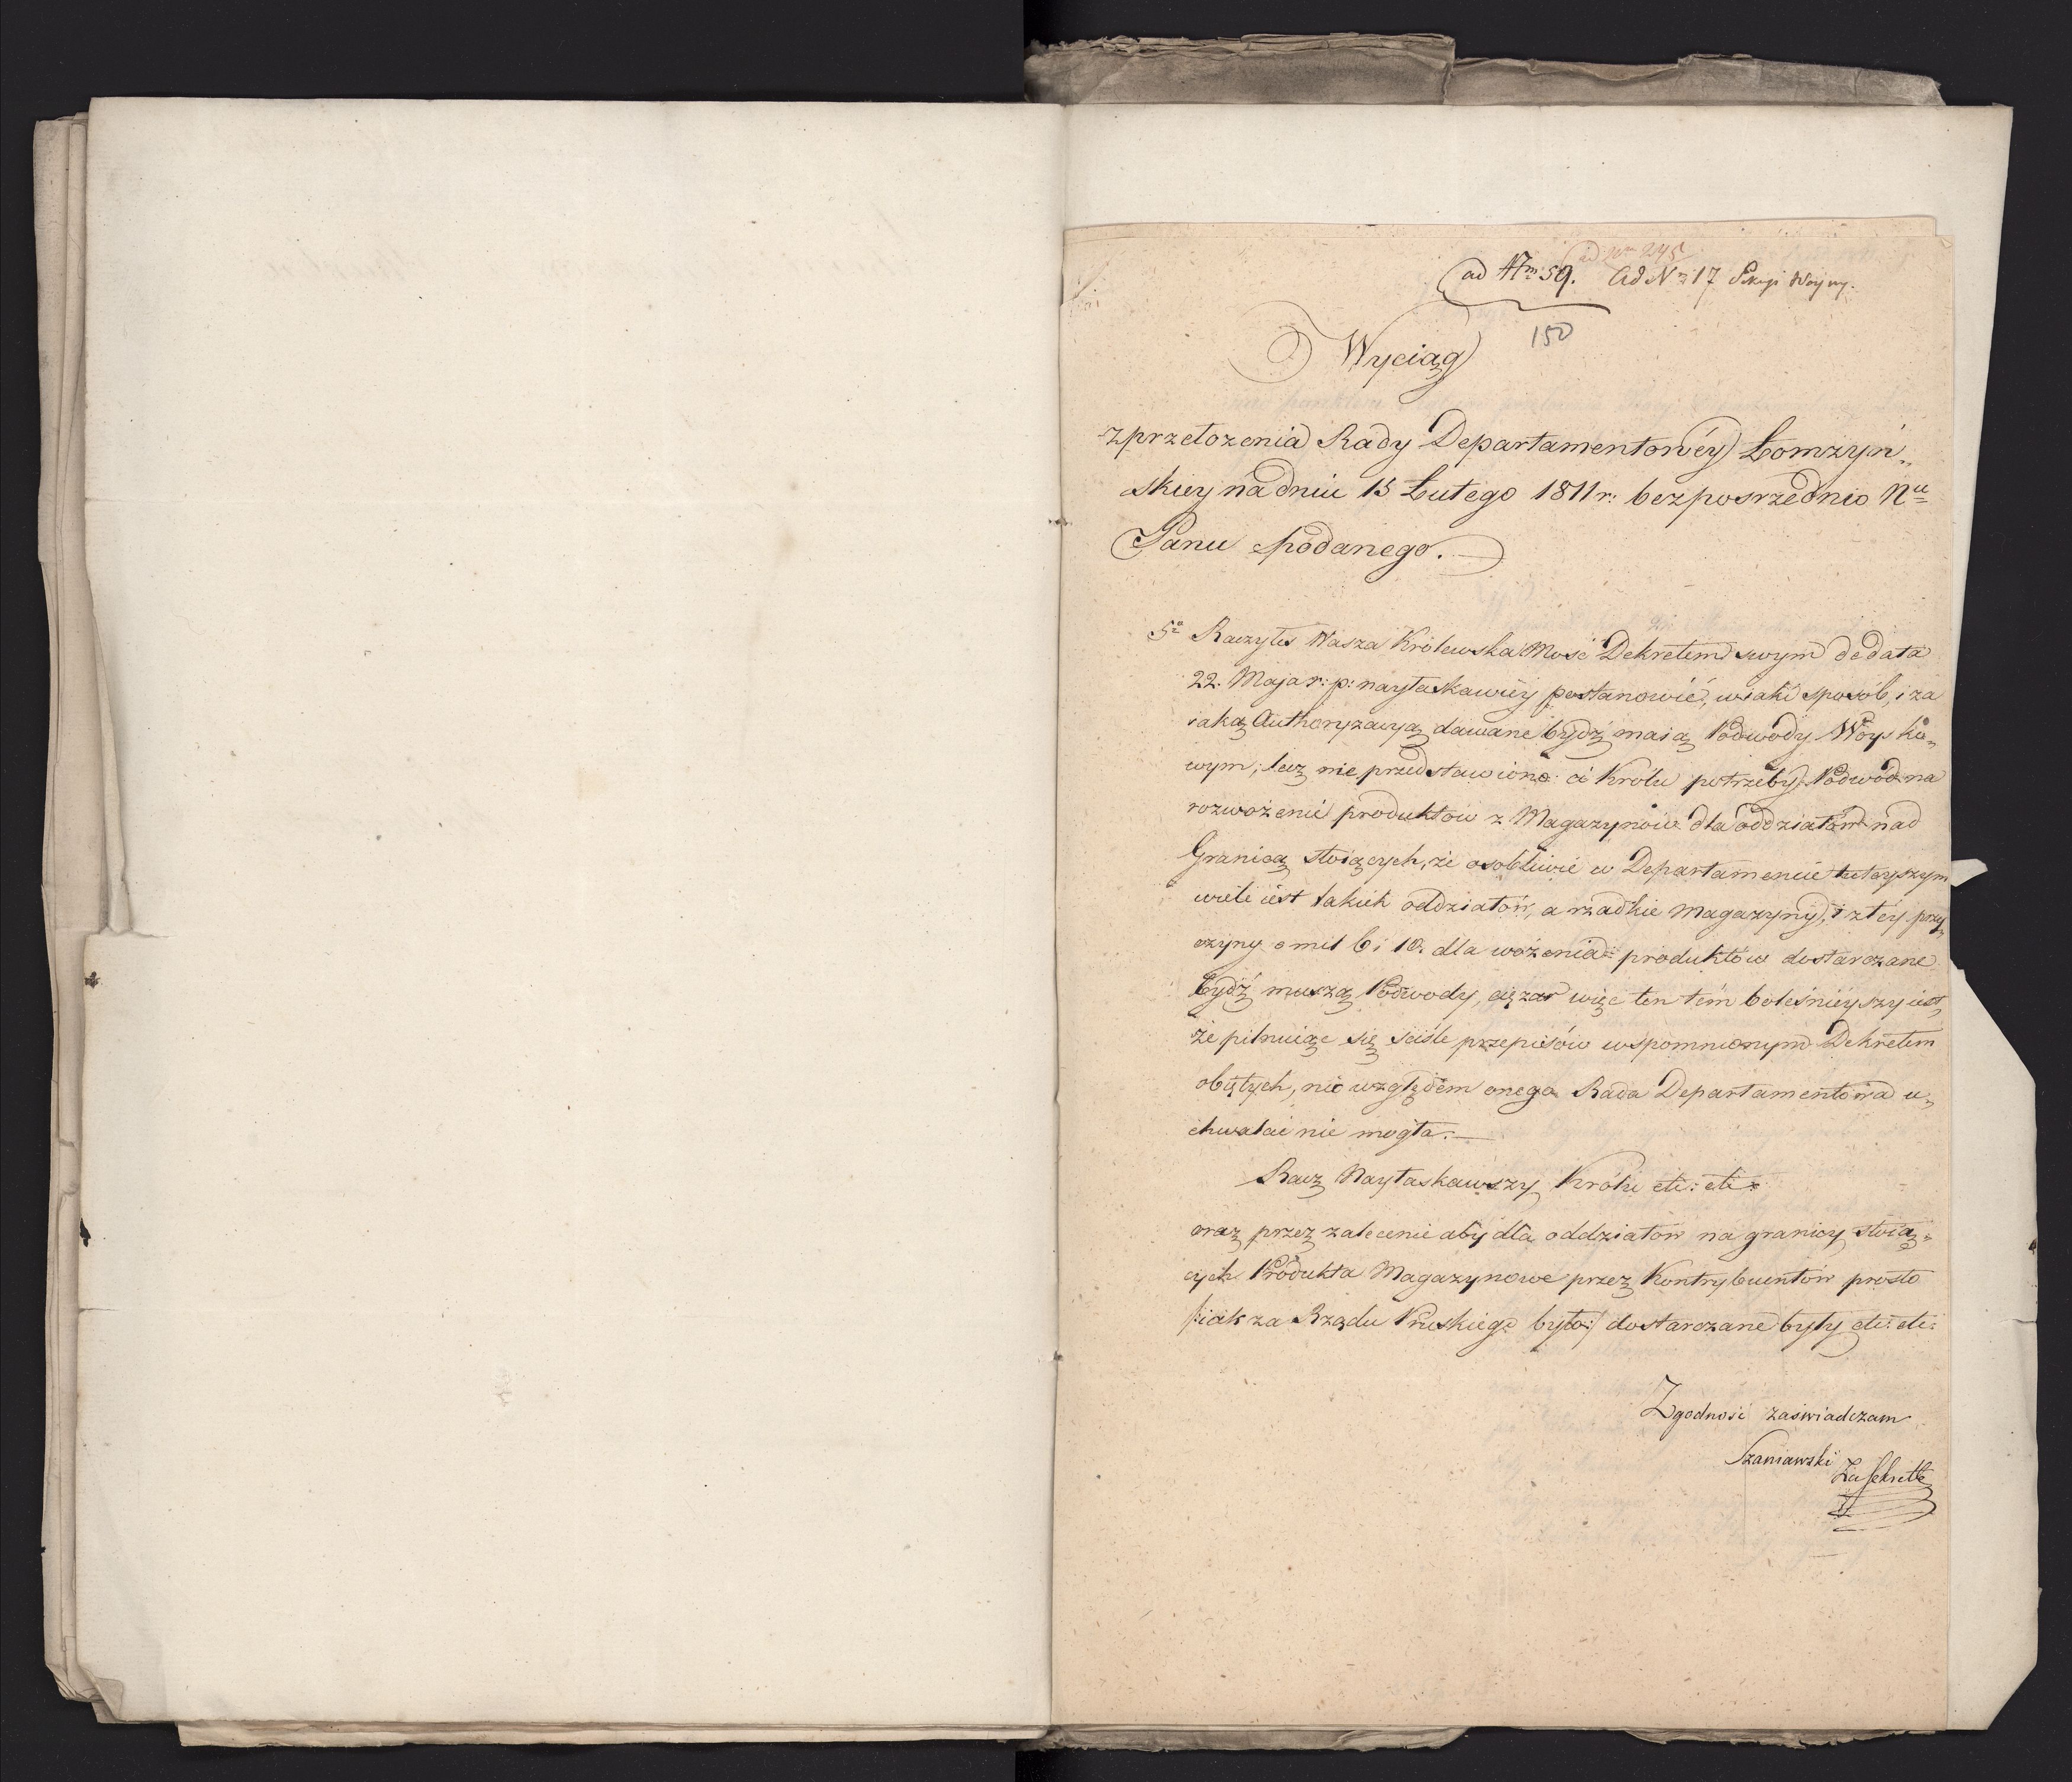 ad Nrm 245
ad Nm 59. Ad Nm 17 Sekcyi Woyny.
150
Wyciąg
z przełożenia Rady Departamentowéy Łomżyń„
skiey na dniu 15 Lutego 1811 r: bezpośrzednio Nu
Panu podanego.
5o Raczyłeś Wasza Królewska Mość Dekretem swym de data
22. Maja r: p: nayłaskawiéy postanowić, w iaki sposób, i za
iaką Authoryzacyą dawane bydź maią Podwody Woysko„
wym; lecz nie przedstawiono ci Królu potrzeby Podwód na
rozwożenie produktów z Magazynów dla oddziałów nad
Granicą stoiących, że osobliwie w Departamencie tuteyszym
wiele iest takich oddziałów, a rzadkie Magazyny, i z téy przy„
czyny o mil 6 i 10. dla wożenia produktów dostarczane
bydź muszą Podwody, ciężar więc ten tém boleśnieyszy iest,
że pilnuiąc się ściśle przepisów wspomnionym Dekretem
obiętych, nic względem onego Rada Departamentowa u„
chwalać nie mogła.
Racz Nayłaskawszy Królu etc: etc:
oraz przez zalecenie aby dla oddziałów na granicy stoią„
cych Produkta Magazynowe przez Kontrybuentów prosto
/:iak za Rządu Pruskiego było:/ dostarczane były etc: etc:
Zgodność zaświadczam
Szaniawski